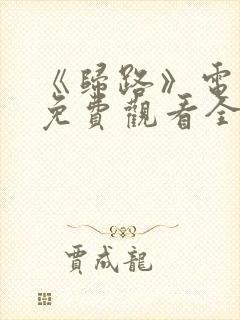 《歸路》電
免費觀看全
賈成龍